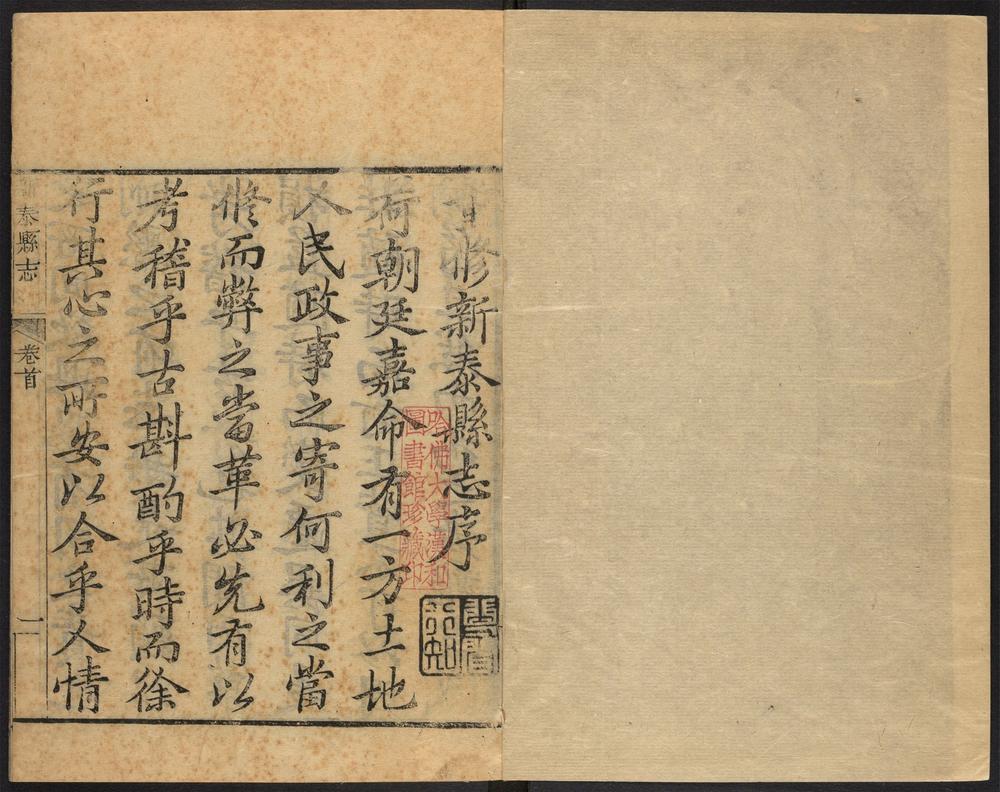 修新泰縣志序
荷朝廷嘉命有一方土地
人民政事之寄何利之當
修而弊之當革必先有以
考稽乎古斟酌乎時而徐
行其心之所安以合乎人情
泰縣志
卷首
一
哈佛大學漢和
圖書館珍藏印